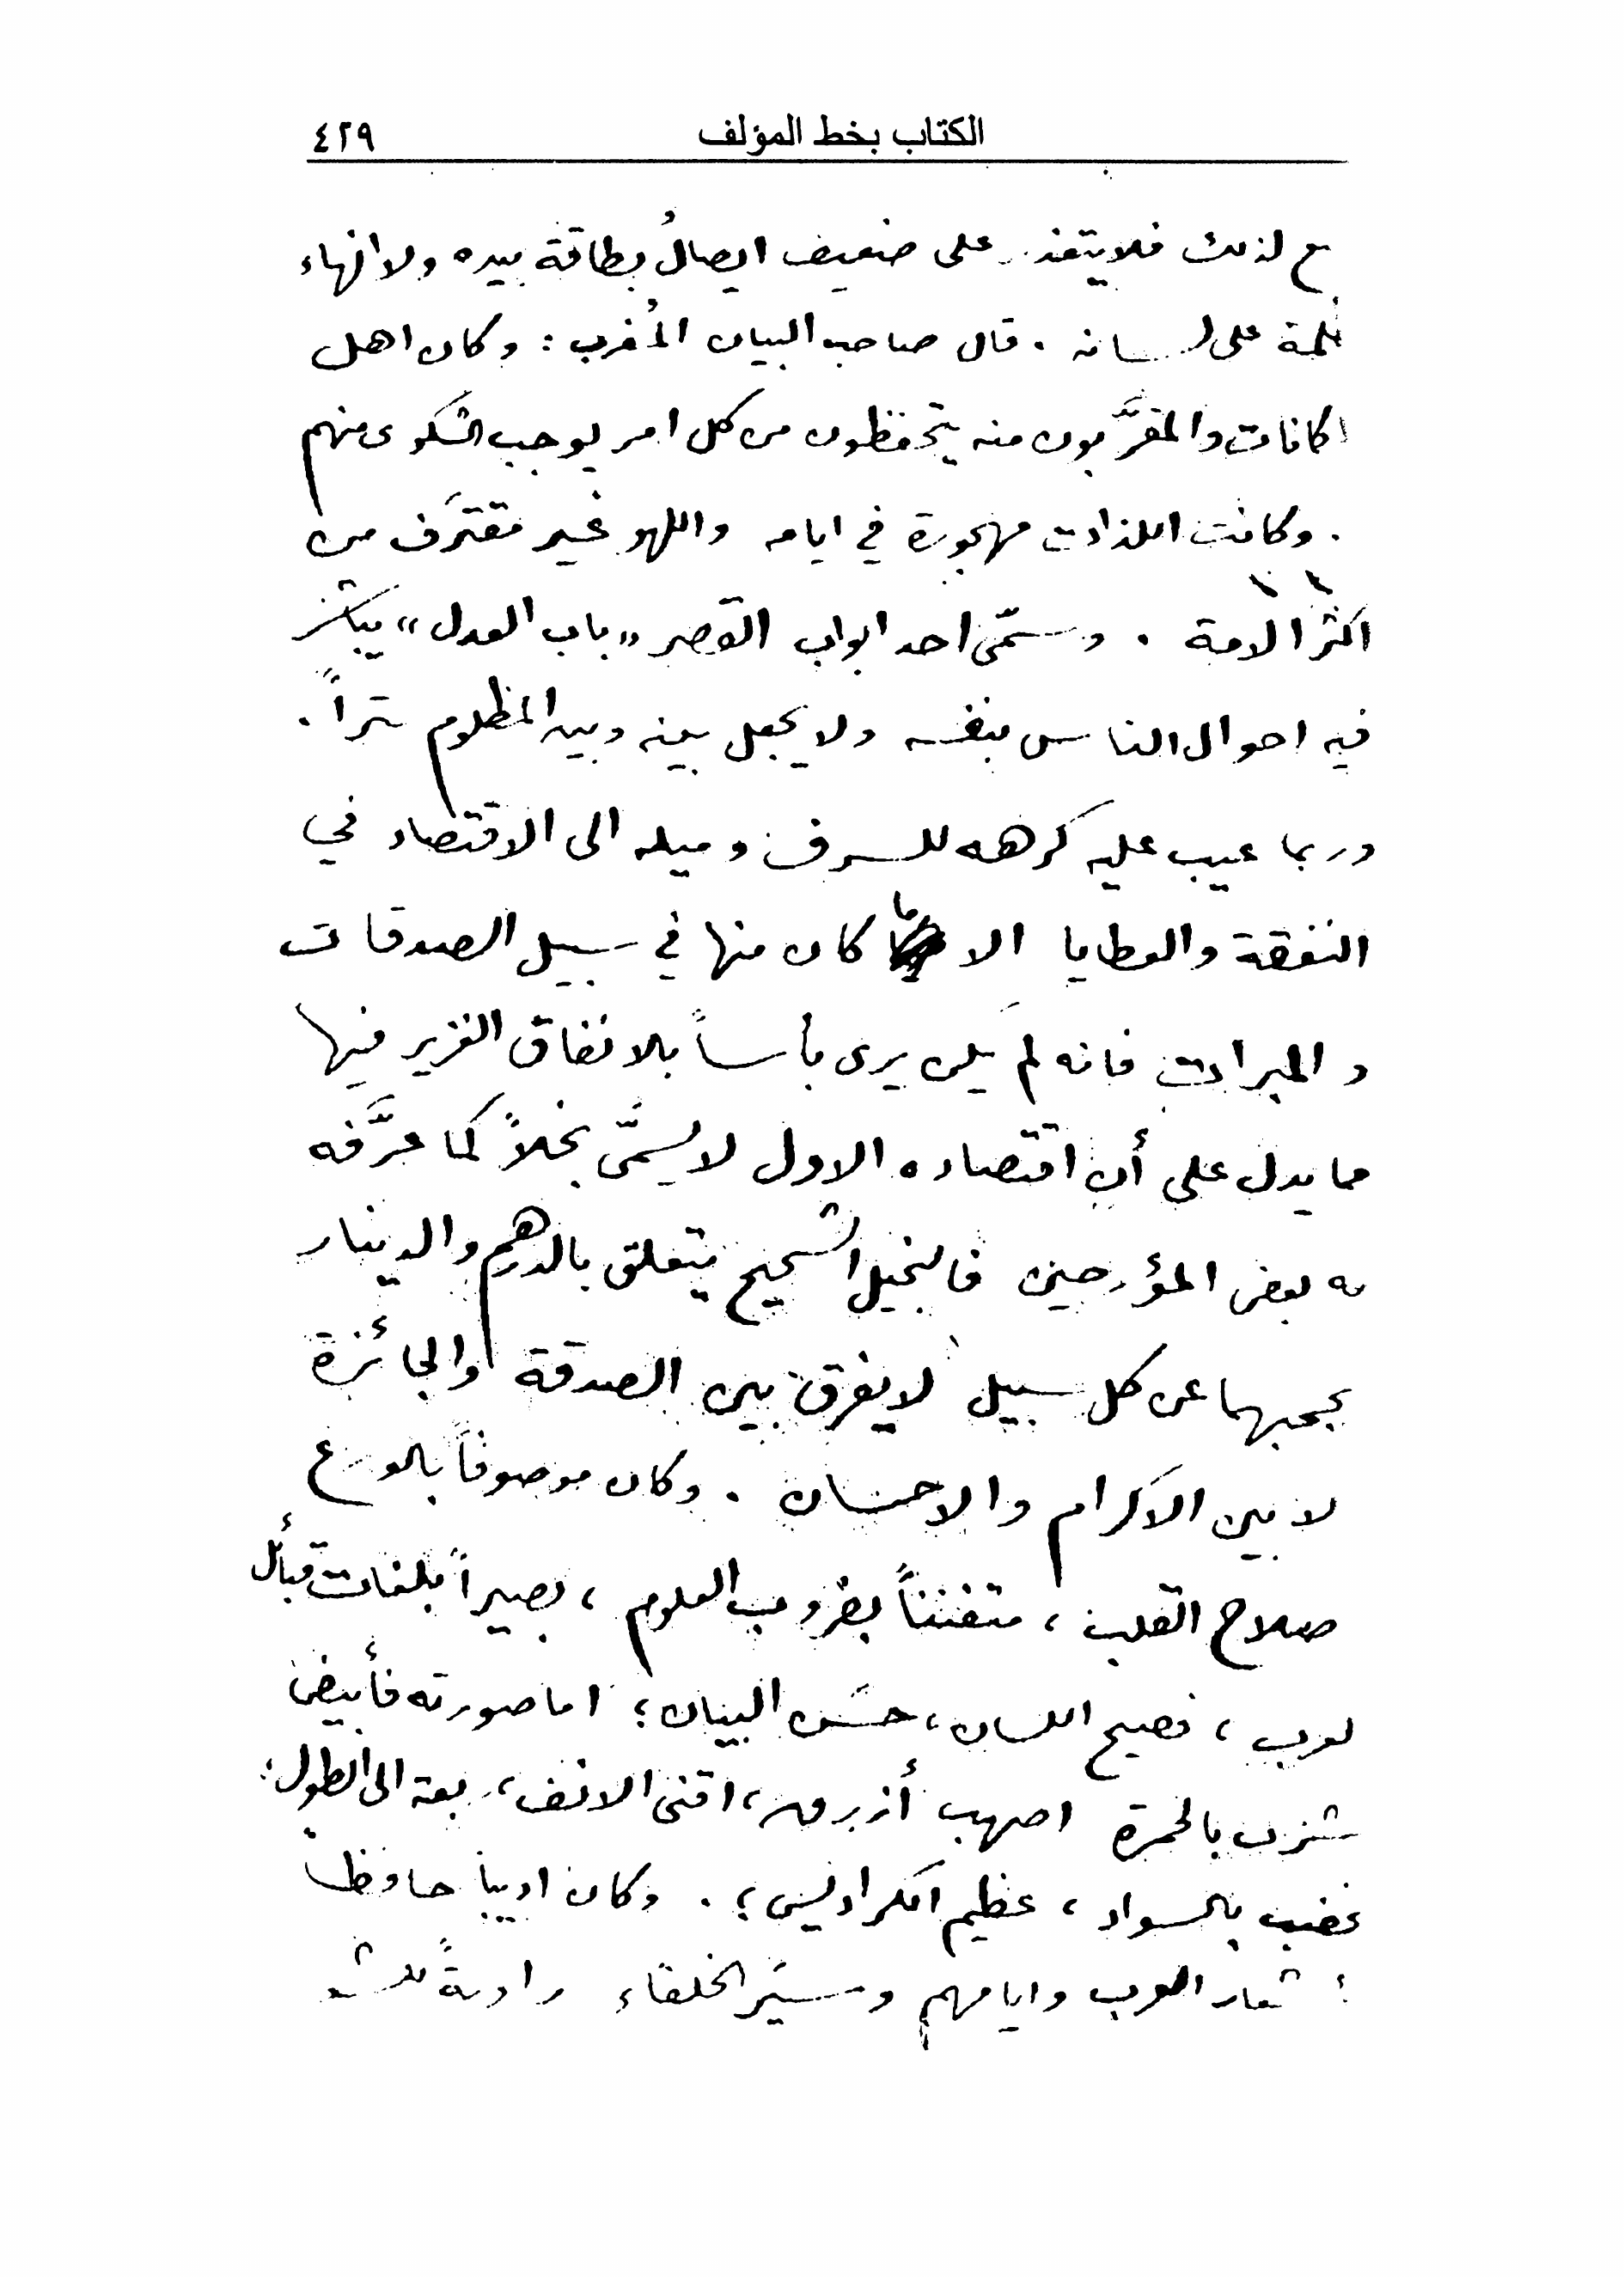 الكتاب بخط المؤلف ٤٢٩
ع لذلك فلا يتعذر على ضعيف ايصالُ بطاقة بيده ولا انهاء
كلمة على لسانه . قال صاحب البيان المُغرب : وكان اهل
المكانات والمقرَّبون منه يتحفظون من كل امر يوجب الشكوى منهم
. وكانت اللذات مهجورة في ايامه واللهو غير مقترَف من
اكثر الامة . وسمّى احد ابواب القصر «باب العدل» يباشر
فيه احوال الناس بنفسه ولا يجعل بينه وبين المظلوم ستراً .
وربما عيب عليه كرهه للسرف وميله الى الاقتصاد في
النفقة والعطايا الا ما كان منها في سبيل الصدقات
والمبرات فانه لم يكن يرى بأساً بالانفاق الغزير فيها
مما يدل على أن اقتصاده الاول لا يُسمَّى بخلاً كما عرَّفه
به بعض المؤرخين فالبخيل الشحيح يتعلق بالدرهم والدينار
يحجبهما عن كل سبيل لا يفرق بين الصدقة والجائزة
لا بين الاكرام والاحسان . وكان موصوفاً بالورع
صلاح القلب ، متفنناً بضروب العلوم ، بصيراً بلغات قبائل
لعرب ، فصيح اللسان ، حسَن البيان ؛ اما صورته فأبيض
شرب بالحمرة اصهب أزرق ، اقنى الانف ، ربعة الى الطول ؛
خضب بالسواد ، عظيم الكراديس ؛ . وكان اديباً حافظاً
شعار العرب وايامهم وسيَر الخلفاء راويةً للشـ